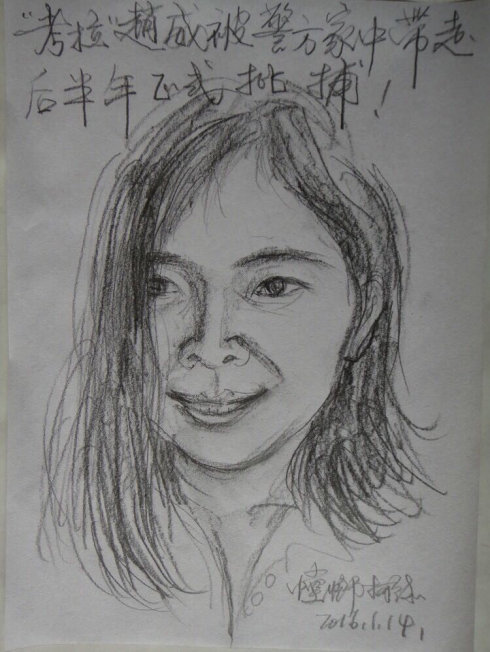 "考拉"趙威被警方家中带走
后半年正式批捕！
2016.1.14